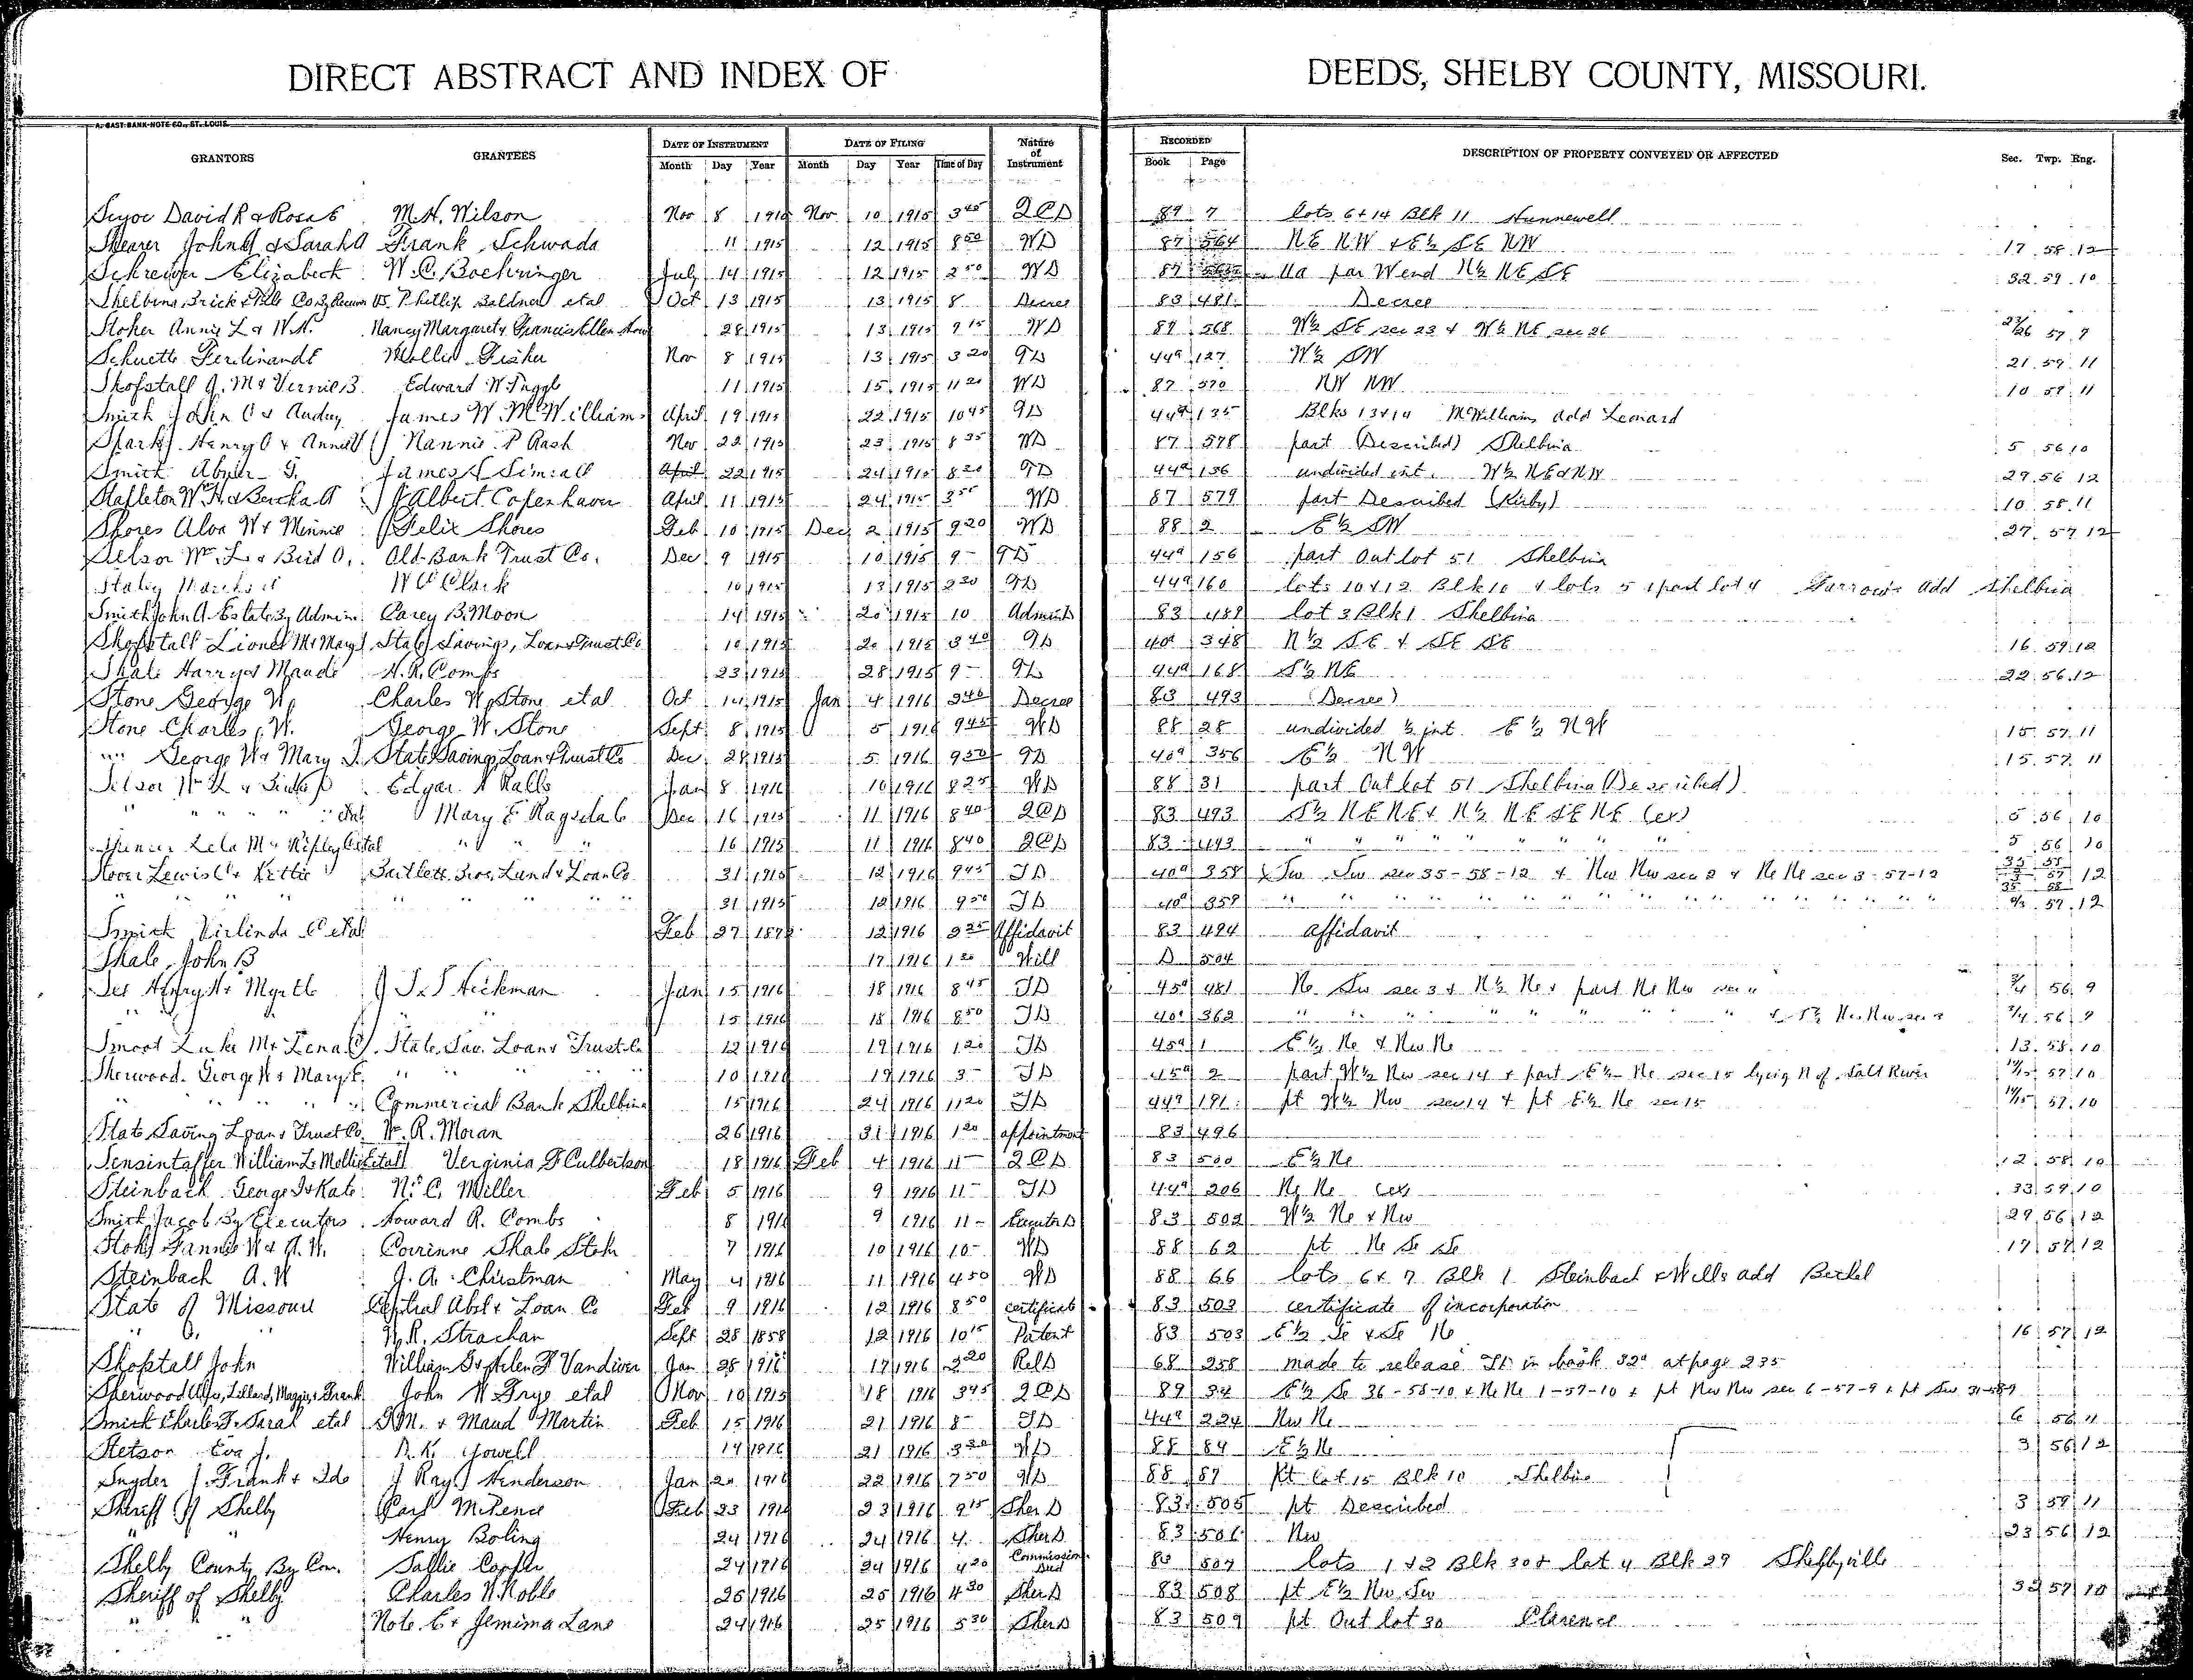 DIRECT ABSTRACT AND INDEX OF DEEDS, SHELBY COUNTY, MISSOURI.
A. GAST BANK NOTE CO., ST. LOUIS.
GRANTORS GRANTEES DATE OF INSTRUMENT DATE OF FILING Nature of Instrument RECORDED DESCRIPTION OF PROPERTY CONVEYED OR AFFECTED Sec. Twp. Rng.
Month Day Year Month Day Year Time of Day Book Page
David R & Rosa E M.H. Wilson Nov 8 Nov 10 1915 3 45 QCD 89 7 lots 6 + 14 Blk 11 Hunnewell
Shearer John & Sarah A Frank Schwada 11 1915 12 1915 8 50 WD 87 564 NE NW & E½ SE NW 17 58 12
Elizabeth W.C. Boehringer July 14 1915 12 1915 2 50 WD 87 11a par W end N½ NE SE 32 59 10
Shelbina Brick & Tile Co By VS. Phillip Baldner et al Oct 13 1915 13 1915 8 Decree 83 481 Decree
Stoker Annie L & W.H. Nancy Margaret & Francis Ellen 28 1915 13 1915 9 15 WD 87 568 W½ SE sec 23 & W½ NE sec 26 23/26 57 9
Schuette Ferdinande Mollie Fisher Nov 8 1915 13 1915 3 20 TD 44a 127 W½ SW 21 59 11
Shofstall J. M & Vernie B. Edward W. Tuggle 11 1915 15 1915 11 20 WD 87 570 NW NW 10 58 11
Smith John C & Audry James W. McWilliams April 19 1915 22 1915 10 45 TD 44a 135 Blks 13 & 14 McWilliams add Leonard
Sparks Henry O & Annie Nannie P Rash Nov 22 1915 23 1915 8 35 WD 87 578 part (Described) Shelbina 5 56 10
Smith Abner T. James S Simrall April 22 1915 24 1915 8 20 TD 44a 136 undivided int. W½ NE & NW 29 56 12
Stapleton W.H. & Bertha A J Albert Copenhaver April 11 1915 24 1915 3 55 WD 87 579 part Described (Kirby) 10 58 11
Shores Alva W & Minnie Felix Shores Feb 10 1915 Dec 2 1915 9 20 WD 88 2 E½ SW 27 57 12
Selsor Wm. L & Bird O. Old Bank Trust Co. Dec 9 1915 10 1915 9 - TD 44a 156 part Out lot 51 Shelbina
Staley W C Clark 10 1915 13 1915 2 20 TD 44a 160 lots 10 & 12 Blk 10 & lots 5 & part lot 4 add Shelbina
Smith John A. Estate By Admin Carey B. Moon 14 1915 20 1915 10 Admin D 83 489 lot 3 Blk 1 Shelbina
Shofstall Lionel M & Mary State Savings, Loan & Trust Co 10 1915 20 1915 3 40 TD 40a 348 N½ SE & SE SE 16 59 12
Shale Harry & Maude H. R. Combs 23 1915 28 1915 9 - TD 44a 168 S½ NE 22 56 12
Stone George W. Charles W. Stone et al Oct 14 1915 Jan 4 1916 3 40 Decree 83 493 (Decree)
Stone Charles W. George W. Stone Sept 8 1915 5 1916 9 45 WD 88 28 undivided ½ int. E½ NW 15 57 11
" George W & Mary J. State Savings Loan & Trust Co Dec 28 1915 5 1916 9 50 TD 40a 356 E½ NW 15 57 11
Selsor Wm L & Edgar N Ralls Jan 8 1916 10 1916 8 25 WD 88 31 part Out lot 51 Shelbina (Described)
" " " " et al Mary E. Ragsdale Dec 16 1915 11 1916 8 40 QCD 83 493 S½ NE NE & N½ NE SE NE (ex) 5 56 10
Spencer Lela M & Ripley C et al " " " 16 1915 11 1916 8 40 QCD 83 493 " " " " " " " " 5 56 10
Stover Lewis C & Kittie Bartlett Bros. Land & Loan Co 31 1915 12 1916 9 45 TD 40a 358 Sw Sw sec 35-58-12 & Nw Nw sec 2 & Ne Ne sec 3-57-12
" " " " " 31 1915 12 1916 9 50 TD 40a 359 " " " " " " " "
Smith Virlinda C et al Feb 27 12 1916 2 25 Affidavit 83 494 Affidavit
Shale John B 17 1916 1 20 Will D 504
Henry H & Myrtle J. T. S Hickman Jan 15 1916 18 1916 8 45 TD 45a 481 Ne Sw sec 3 & N½ Ne & part Ne Nw sec 4 3/4 56 9
" " 15 1916 18 1916 8 50 TD 40a 362 " " " " " " 3/4 56 9
Smoot Luke M & Lena C. State Sav. Loan & Trust Co 12 1916 19 1916 1 20 TD 45a 1 E½ Ne & Nw Ne 13 58 10
Sherwood George W & Mary E. " " " " 10 1916 19 1916 3 - TD 45a 2 part W½ Nw sec 14 & part E½ Ne sec 15 lying N of Salt River 14/15 57 10
" " " " Commercial Bank Shelbina 15 1916 24 1916 11 20 TD 44a 191 pt W½ Nw sec 14 & pt E½ Ne sec 15 14/15 57 10
State Saving Loan & Trust Co W. R. Moran 26 1916 31 1916 1 20 appointment 83 496
Sensintaffer William L & Mollie E et al Verginia F Culbertson 18 1916 Feb 4 1916 11 - QCD 83 500 E½ Ne 12 58 10
Steinbach George I & Kate N. C. Miller Feb 5 1916 9 1916 11 - TD 44a 206 Ne Ne (ex) 33 59 10
Smith Jacob By Executors Howard R. Combs 8 1916 9 1916 11 - Executor D 83 502 W½ Ne & Nw 29 56 12
Fannie W & A. W. Corrinne Shale 7 1916 10 1916 10 - WD 88 62 pt Ne Se Se 17 57 12
Steinbach A. W J. A. Christman May 4 1916 11 1916 4 50 WD 88 66 lots 6 & 7 Blk 1 Steinbach & Wells add Bethel
State of Missouri Central Abst & Loan Co Feb 9 1916 12 1916 8 50 certificate 83 503 certificate of incorporation
" " W. R. Strachan Sept 28 1858 12 1916 10 15 Patent 83 503 E½ Se & Se Ne 16 57 12
Shofstall John William G & Helen F Vandiver Jan 28 1916 17 1916 2 20 Rel D 68 258 made to release TD in book 32a at page 235
Sherwood Alfa, Lillard, Maggie & Frank John W Frye et al Nov 10 1915 18 1916 3 45 QCD 89 34 E½ Se 36-58-10 & Ne Ne 1-57-10 & pt Nw Nw sec 6-57-9 & pt Sw 31-58-9
Smith Charles F. Sarah et al G. M. & Maud Martin Feb 15 1916 21 1916 8 - TD 44a 224 Nw Ne 6 56 11
Stetson Eva J. R. K. Yowell 14 1916 21 1916 3 20 WD 88 84 E½ Ne 3 56 12
Snyder J. Frank & Ida J Ray Henderson Jan 20 1916 22 1916 7 50 WD 88 87 Pt lot 15 Blk 10 Shelbina
Sheriff of Shelby Carl McKence Feb 23 1916 23 1916 9 15 Sher D 83 505 pt Described 3 59 11
" " Henry Boling 24 1916 24 1916 4 Sher D 83 506 Nw 23 56 12
Shelby County By Com. Sallie 24 1916 24 1916 4 20 Commission Deed 83 507 lots 1 & 2 Blk 30 & lot 4 Blk 29 Shelbyville
Sheriff of Shelby Charles W. Noble 25 1916 25 1916 4 30 Sher D 83 508 pt E½ Nw Sw 32 57 10
" " Note. E & Jemima Lane 24 1916 25 1916 5 30 Sher D 83 509 pt Out lot 30 Clarence